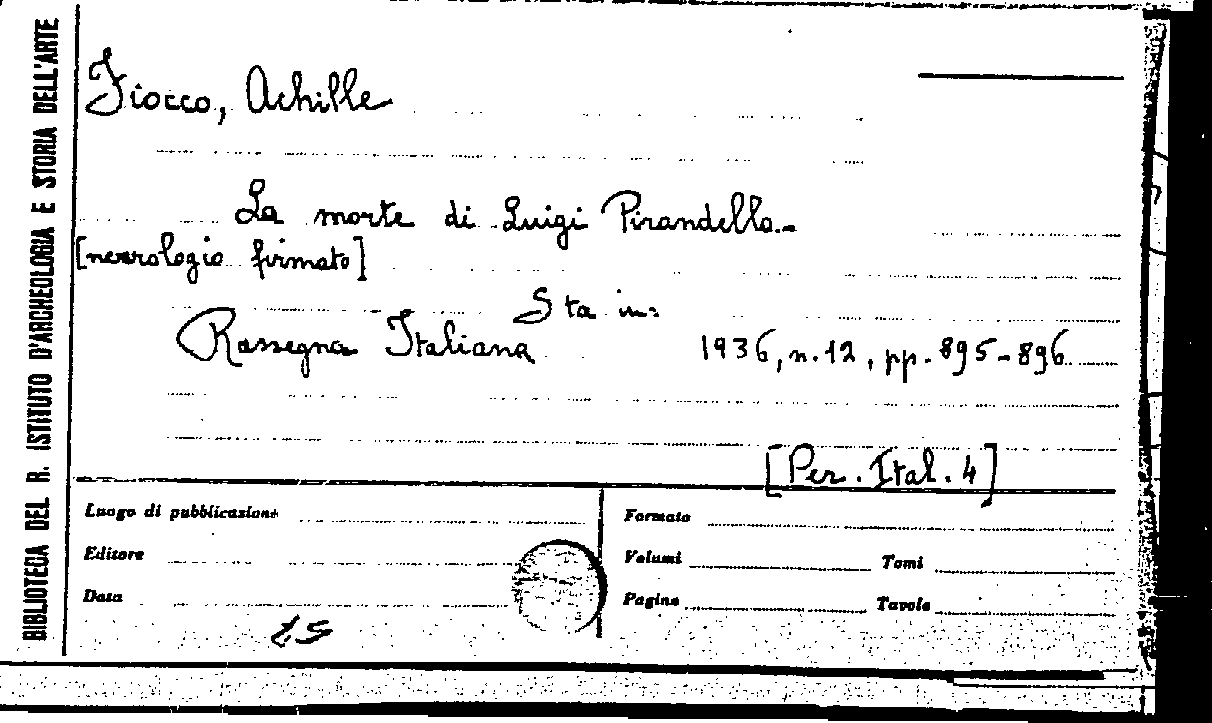 BIBLIOTECA DEL R. ISTITUTO D'ARCHEOLOGIA E STORIA DELL'ARTE
Fiocco, Achille
La morte di Luigi Pirandello.-
[necrologio firmato]
Sta in:
Rassegna Italiana 1936, n. 12, pp. 895-896
[Per. Ital. 4]
Luogo di pubblicazione
Editore
Data
Formato
Volumi Tomi
Pagine Tavole